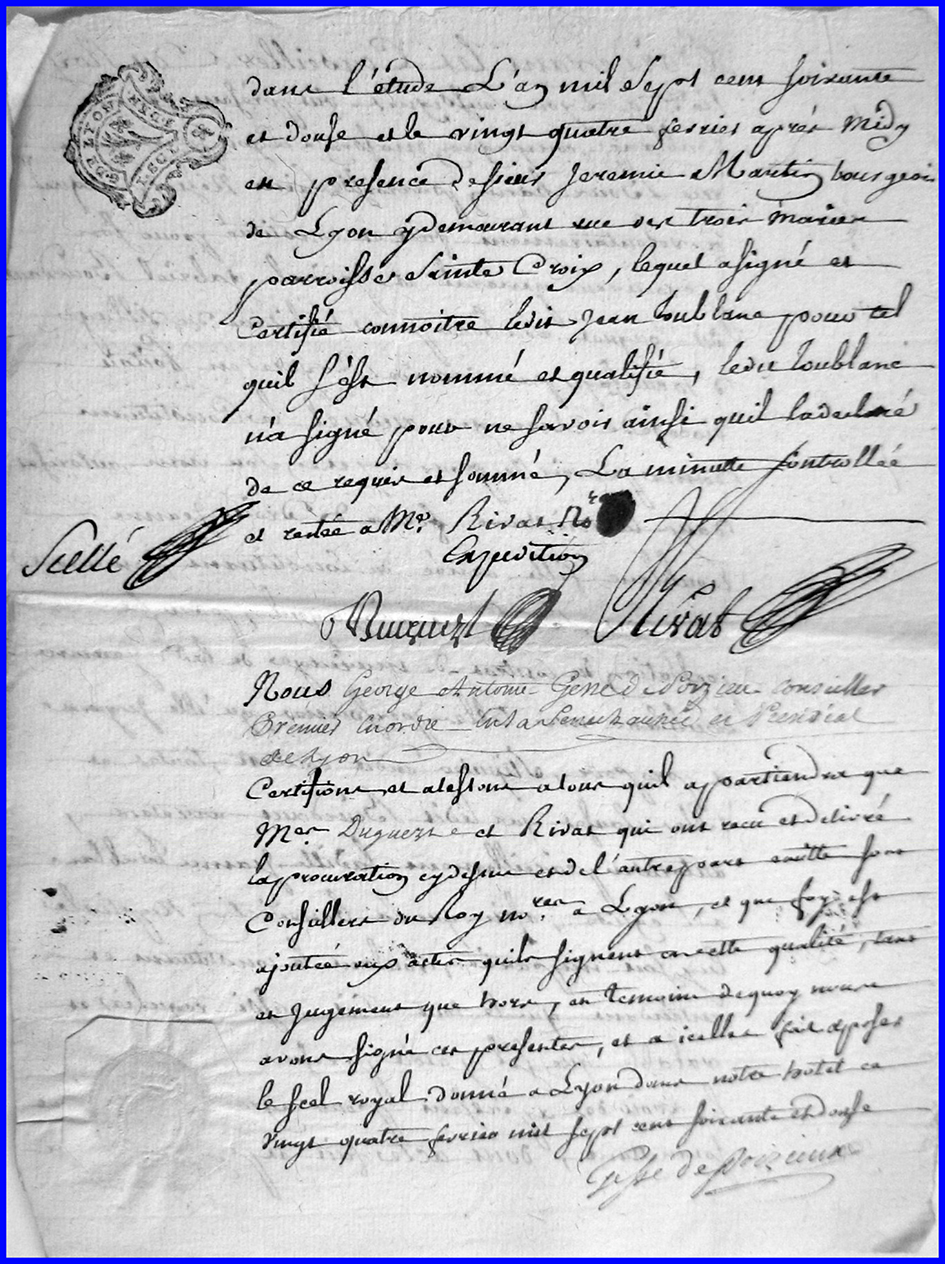 dans l'étude L'an mil Sept cent soixante
et douse et le vingt quatre fevrier aprés Midy
en presence de sieur Jeremie Martin bourgeois
de Lyon y demeurant rue des trois maries
parroisse Sainte Croix, lequel a signé et
Certifié connoitre ledit Jean Loublanc pour tel
quil s'ést nommé et qualifié, ledit Loublanc
n'a signé pour ne savoir ainsi quil la declaré
de ce requis et sommé, La minutte Controllée
et restée a Me. Rivat No.re
Scellé
Expedition
Duquezt Rivat
Nous George Antoine de conseiller
Premier en la Senechaussée et Presidial
de Lyon
Certifions et atestons a tous quil appartiendra que
Mes. et Rivat qui ont recu et delivré
la procuration cy dessus et de l'autre part sont
Conseillers du Roy no.res a Lyon, et que foy est
ajoutée aux actes quils signent en cette qualité, tant
en Jugement que hors, en temoin de quoy nous
avons signé ces presentes, et a icelles fait aposer
le scel royal donné a Lyon dans notre hotel ce
vingt quatre fevrier mil sept cent soixante et douse